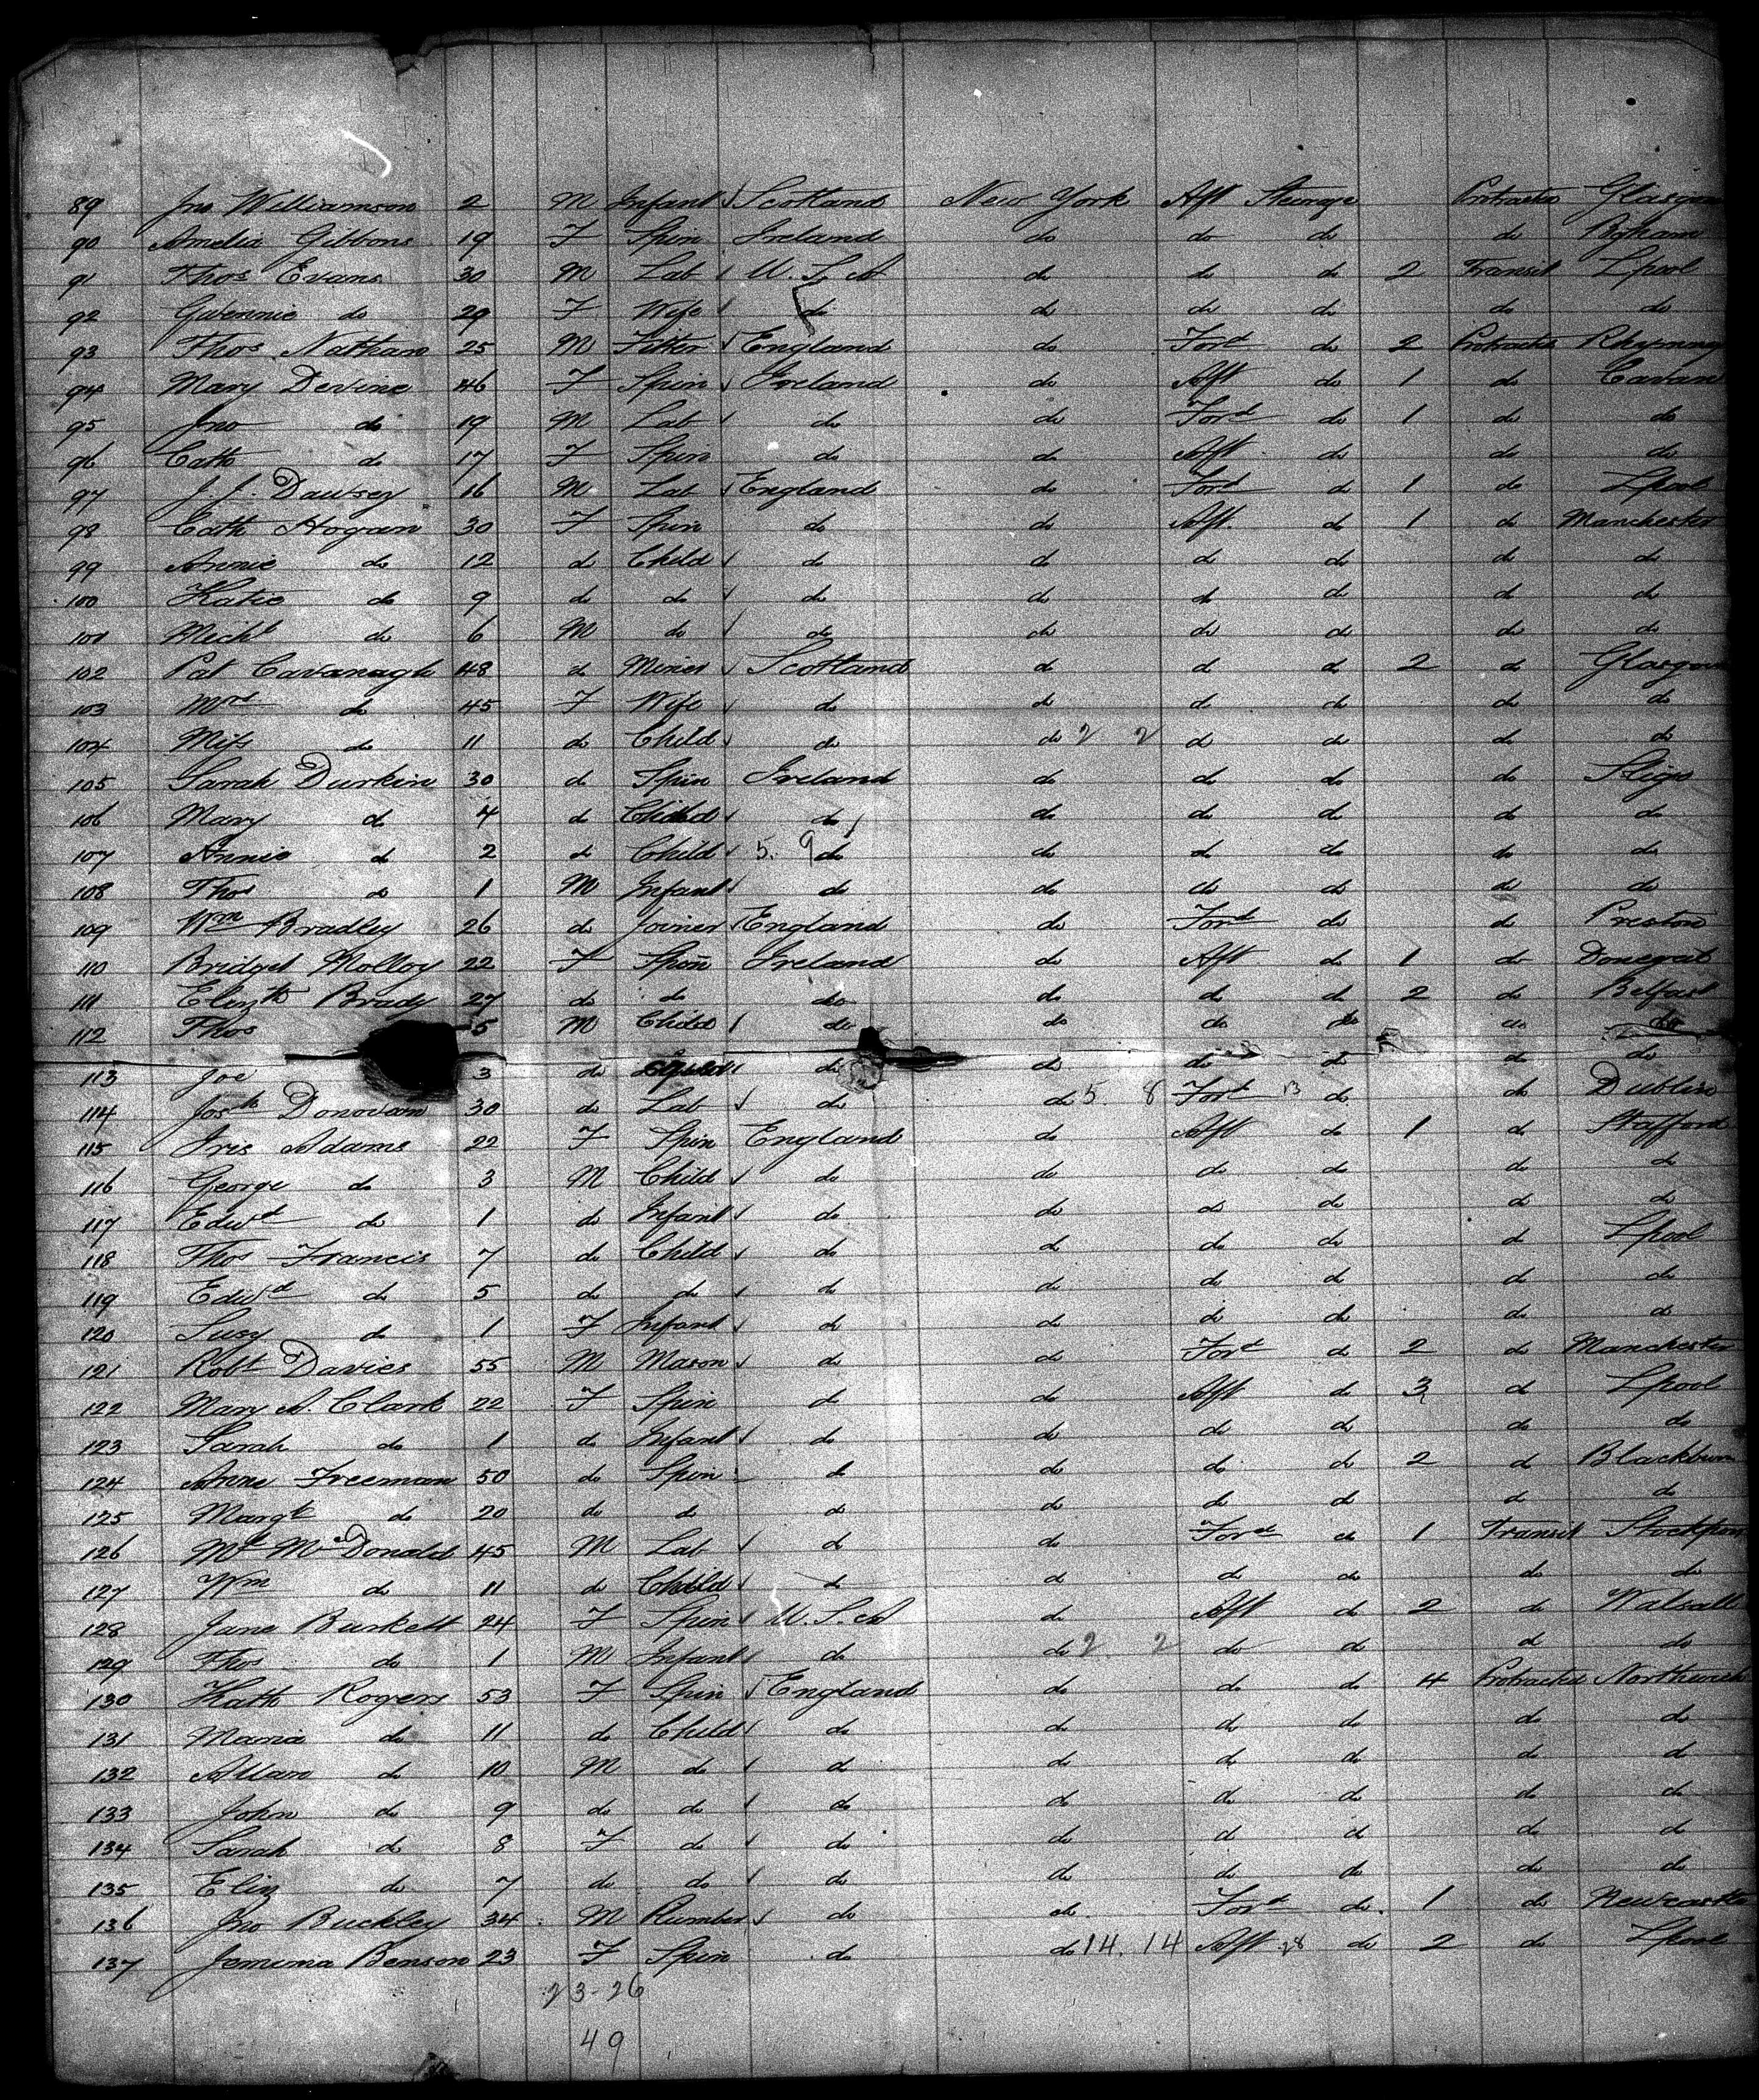 89 Jno Williamson 2 M Infant Scotland New York Aft Steerage Protracted Glasgow
90 Amelia Gibbons 19 F Spin Ireland do do do do Bgham
91 Thos Evans 30 M Lab U.S.A do do do 2 Transit Lpool
92 Gwennie do 29 F Wife do do do do do do
93 Thos Nathan 25 M Fitter England do Ford do 2 Protracted Rhymney
94 Mary Devine 46 F Spin Ireland do Aft do 1 do Cavan
95 Jno do 19 M Lab do do Ford do 1 do do
96 Cath do 17 F Spin do do Aft do do do
97 J. J. Dawsey 16 M Lab England do Ford do 1 do Lpool
98 Cath Hogan 30 F Spin do do Aft do 1 do Manchester
99 Annie do 12 do Child do do do do do do
100 Katie do 9 do do do do do do do do
101 Michl do 6 M do do do do do do do
102 Pat Cavanagh 48 do Miner Scotland do do do 2 do Glasgow
103 Mrs do 45 F Wife do do do do do do
104 Miss do 11 do Child do do 2 2 do do do do
105 Sarah Durkin 30 do Spin Ireland do do do do Sligo
106 Mary do 4 do Child do do do do do do
107 Annie do 2 do Child 5. 9 do do do do do do
108 Thos do 1 M Infant do do do do do do
109 Wm Bradley 26 do Joiner England do Ford do do Preston
110 Bridget Molloy 22 F Spin Ireland do Aft do 1 do Donegal
111 Elizth Brady 27 do do do do do do 2 do Belfast
112 Thos 5 M Child do do do do do do
113 Joe 3 do do do do do do do
114 Josh Donovan 30 do Lab do do 5 8 Ford 13 do do Dublin
115 Iris Adams 22 F Spin England do Aft do 1 do Stafford
116 George do 3 M Child do do do do do do
117 Edwd do 1 do Infant do do do do do do
118 Thos Francis 7 do Child do do do do do Lpool
119 Edwd do 5 do do do do do do do do
120 Lucy do 1 F Infant do do do do do do
121 Robt Davies 55 M Mason do do Ford do 2 do Manchester
122 Mary A. Clark 22 F Spin do do Aft do 3 do Lpool
123 Sarah do 1 do Infant do do do do do do
124 Anne Freeman 50 do Spin do do do do 2 do Blackburn
125 Margt do 20 do do do do do do do do
126 Mt McDonald 45 M Lab do do Ford do 1 Transit Stockport
127 Wm do 11 do Child do do do do do do
128 Jane Burkett 24 F Spin U.S.A do Aft do 2 do Walsall
129 Thos do 1 M Infant do do 2 2 do do do do
130 Kath Rogers 53 F Spin England do do do 4 Protracted Northwich
131 Maria do 11 do Child do do do do do do
132 Allan do 10 M do do do do do do do
133 John do 9 do do do do do do do do
134 Sarah do 8 F do do do do do do do
135 Eliz do 7 do do do do do do do do
136 Jno Buckley 34 M Plumber do do Ford do 1 do Newcastle
137 Jemima Benson 23 F Spin do do 14. 14 Aft 28 do 2 do Lpool
23-26
49